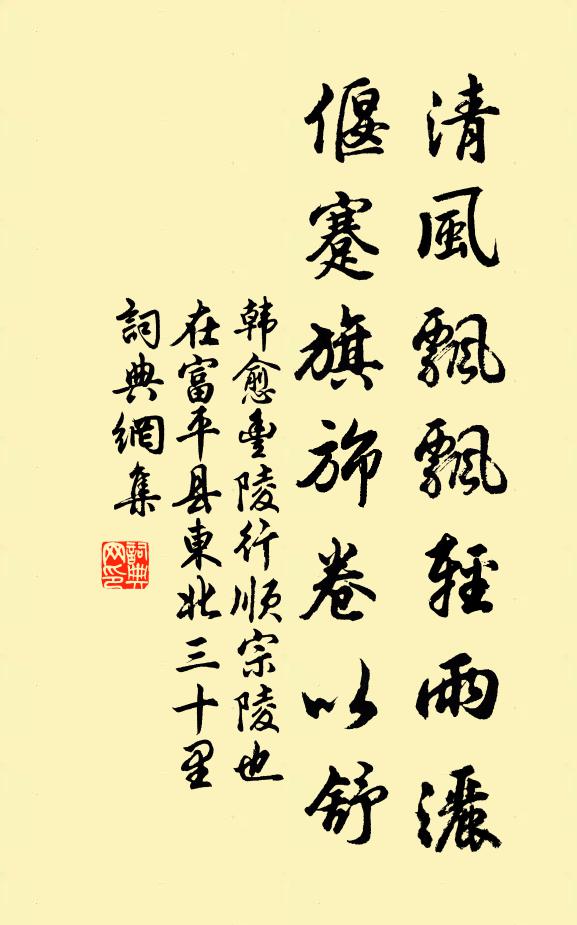 清風飄飄輕雨灑
偃蹇旗旆卷以舒
韩愈豊陵行順宗陵也
在富平县東北三十里
詞典網集
詞典网印